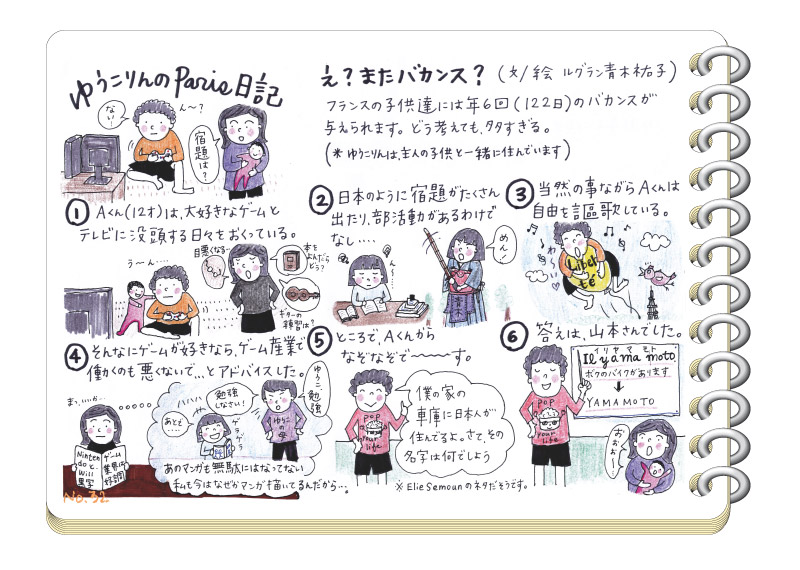 ゆうこりんのParis日記
え？またバカンス？（文/絵 ルグラン青木祐子）
フランスの子供達には年6回(122日)のバカンスが
与えられます。どう考えても、多すぎる。
(＊ゆうこりんは、主人の子供と一緒に住んでいます)
ない！
ん〜？
宿題は？
① Aくん(12才)は、大好きなゲームと
テレビに没頭する日々をおくっている。
う〜ん‥‥
目悪くなる
本をよんだらどう？
ギターの練習は？
② 日本のように宿題がたくさん
出たり、部活動があるわけで
なし‥‥
ん〜
めん
③ 当然の事ながらAくんは
自由を謳歌している。
わーい
Liberté
④ そんなにゲームが好きなら、ゲーム産業で
働くのも悪くないで…とアドバイスした。
まっ、いいか‥
Nintendoと、Will黒字
ゲーム業界は好調
ハハハハ
あとで…
勉強しなさい！
ゲラゲラ
ゆうこ、勉強
ゆうこの母
あのマンガも無駄にはなってない
私も今はなぜかマンガ描いてるんだから…。
No.32
⑤ ところで、Aくんから
なぞなぞで〜〜〜す。
僕の家の
車庫に日本人が
住んでるよ。さて、その
名字は何でしょう
POP your life
※ Elie Semounのネタだそうです。
⑥ 答えは、山本さんでした。
イリヤヤマモト
Il y a ma moto.
ボクのバイクがあります
↓
YAMAMOTO
POP your life
おぉぉ〜